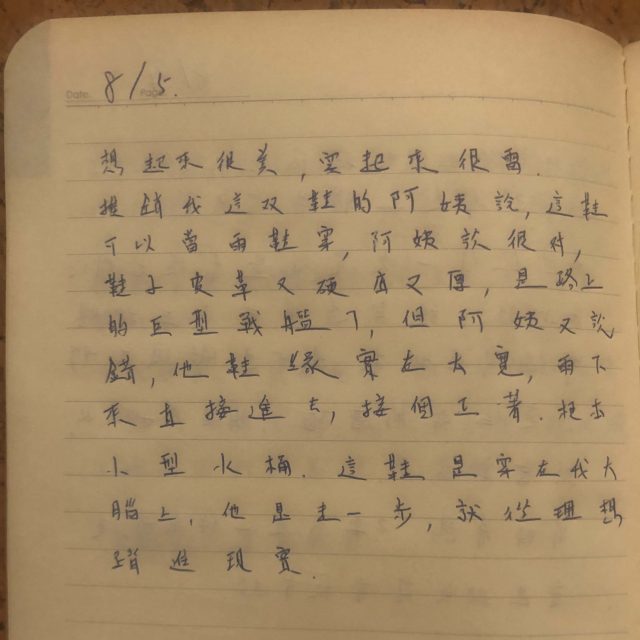 Date. Page.
8/5.
想起來很美,穿起來很雷.
推銷我這双鞋的阿姨說,這鞋
可以當雨鞋穿,阿姨說很对,
鞋子皮革又硬 又厚,是路上
的巨型戰艦了,但阿姨又說
錯,他鞋緣實在太寬,雨下
來直接進去,接個正著.
小型水桶.這鞋是穿在我大
腦上,他是走一步,就從理想
踏進現實.